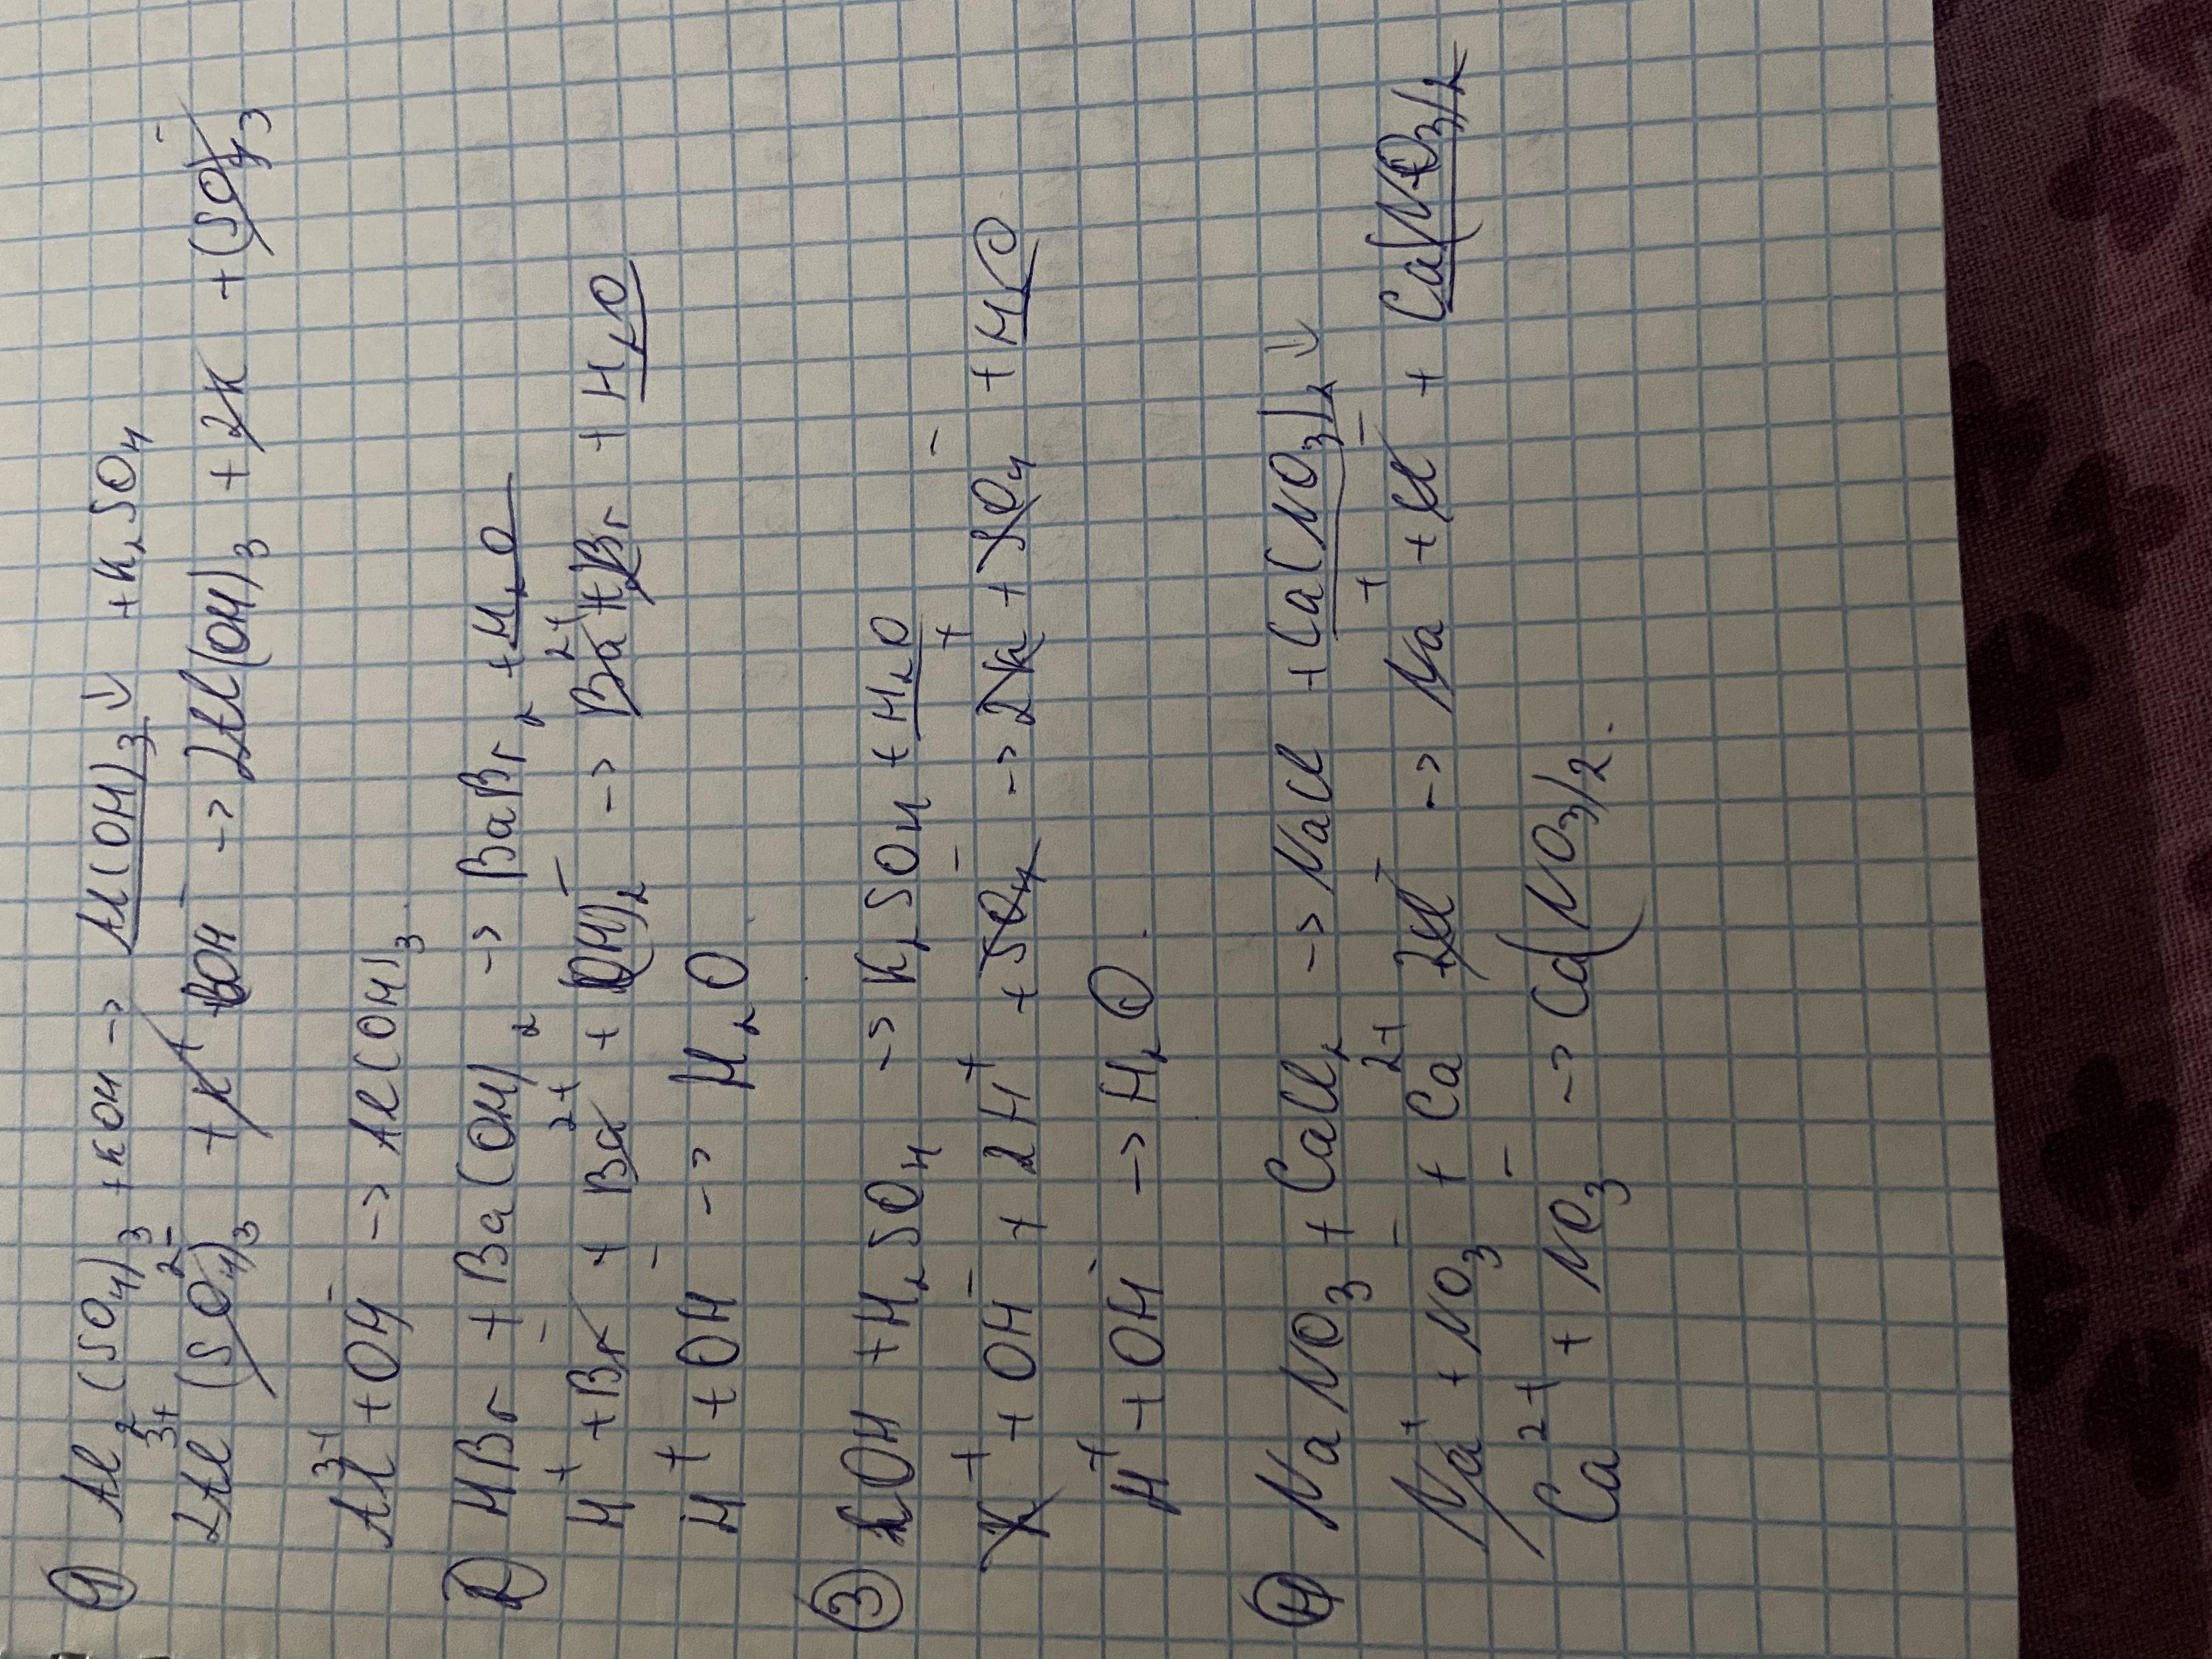 ① Al₂(SO₄)₃ + KOH -> Al(OH)₃↓ + K₂SO₄
2Al³⁺ (SO₄)₃²⁻ + K⁺ + OH⁻ -> 2Al(OH)₃ + 2K + (SO₄)₃⁻
Al³⁺ + OH⁻ -> Al(OH)₃.
② HBr + Ba(OH)₂ -> BaBr₂ + H₂O
H⁺ + Br⁻ + Ba²⁺ + (OH)₂⁻ -> Ba²⁺ + 2Br + H₂O
H⁺ + OH⁻ -> H₂O.
③ KOH + H₂SO₄ -> K₂SO₄ + H₂O
K⁺ + OH⁻ + 2H⁺ + SO₄⁻ -> 2K⁺ + SO₄⁻ + H₂O
H⁺ + OH⁻ -> H₂O.
④ NaNO₃ + CaCl₂ -> NaCl + Ca(NO₃)₂↓
Na⁺ + NO₃⁻ + Ca²⁺ + 2Cl⁻ -> Na⁺ + Cl⁻ + Ca(NO₃)₂
Ca²⁺ + NO₃⁻ -> Ca(NO₃)₂.